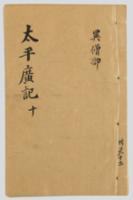 異僧部
太平廣記 十